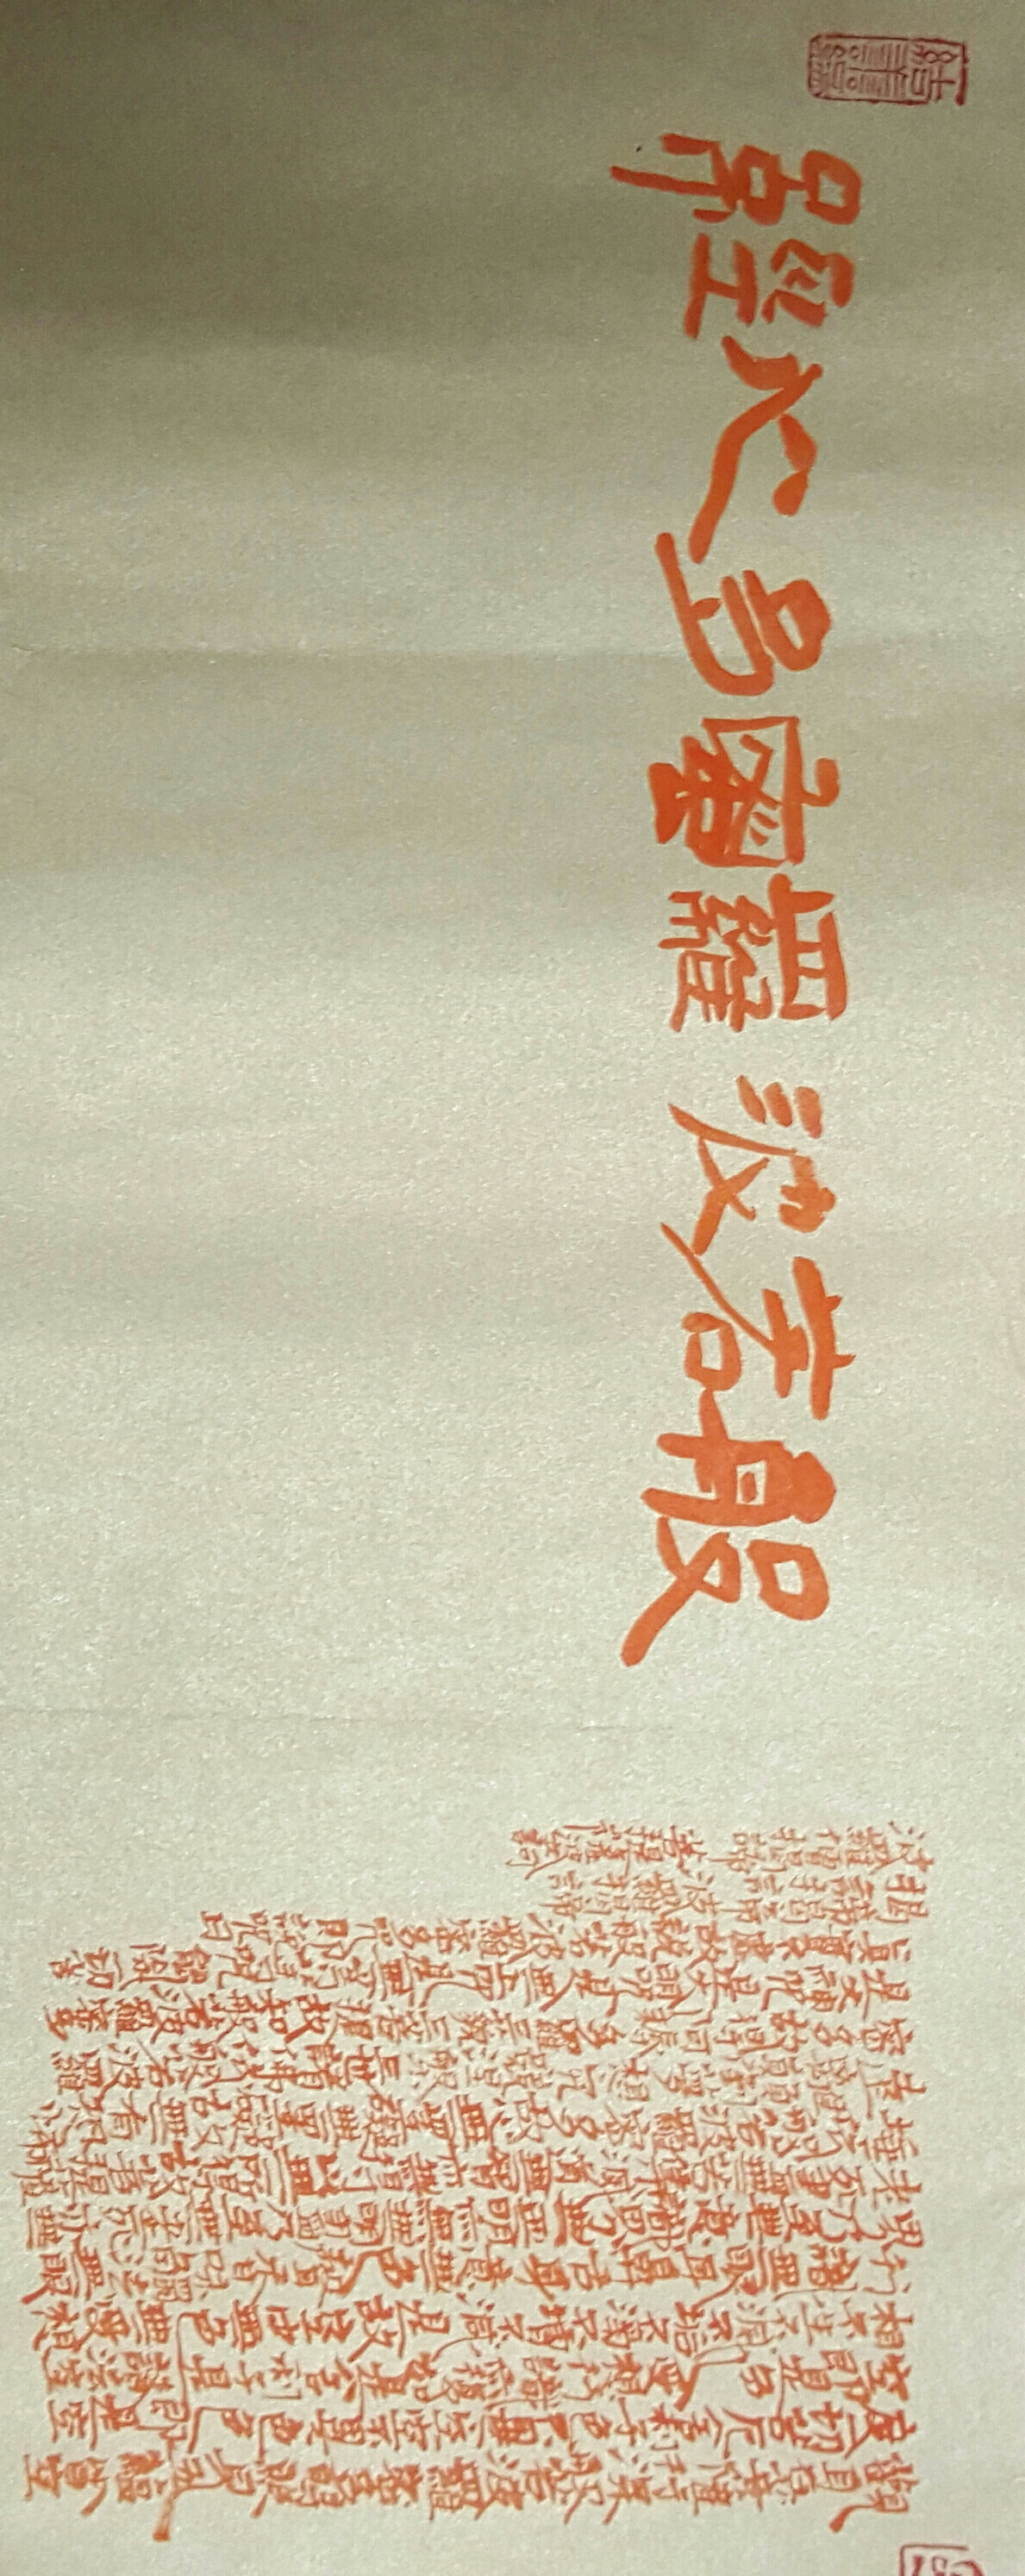 般若波羅蜜多心經
觀自在菩薩行深般若波羅蜜多時照見五蘊皆空
度一切苦厄舍利子色不異空空不異色色即是空
空即是色受想行識亦復如是舍利子是諸法空
相不生不滅不垢不淨不增不減是故空中無色無受想
行識無眼耳鼻舌身意無色聲香味觸法無眼
界乃至無意識界無無明亦無無明盡乃至無老死亦無
老死盡無苦集滅道無智亦無得以無所得故菩提薩
埵依般若波羅蜜多故心無罣礙無罣礙故無有恐怖
顛倒夢想究竟涅槃三世諸佛依般若波羅
蜜多故得阿耨多羅三藐三菩提故知般若波羅蜜多
是大神咒是大明咒是無上咒是無等等咒能除一切苦
真實不虛故說般若波羅蜜多咒即說咒曰
揭諦揭諦 波羅揭諦
波羅僧揭諦 菩提薩婆訶